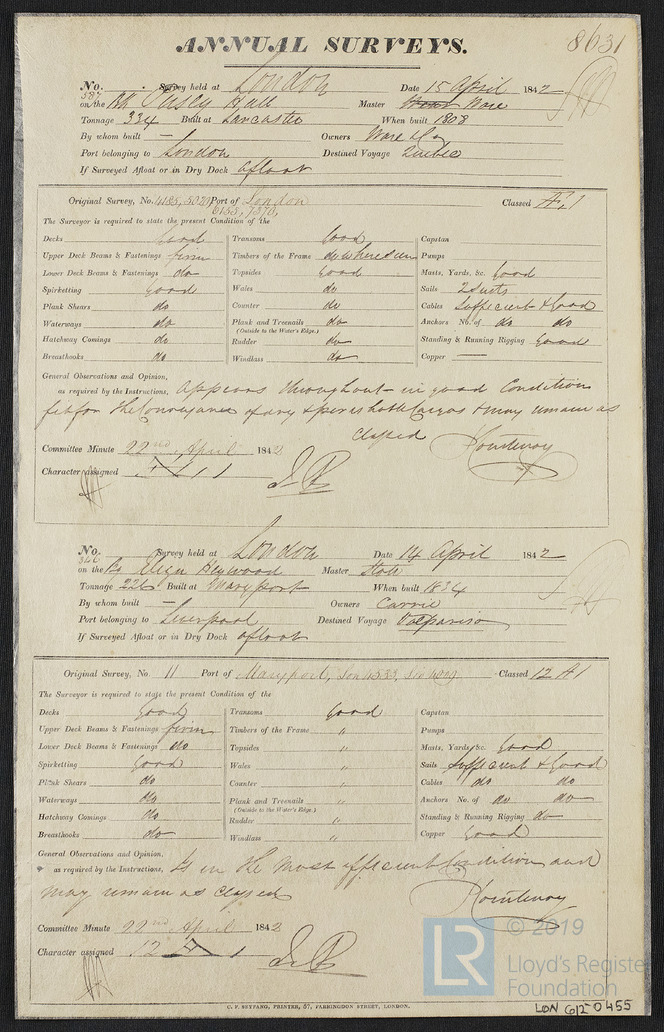 8631
ANNUAL SURVEYS.
No. 387 Survey held at London Date 15 April 1842
on the Bk Hall Master Ware
Tonnage 334 Built at Lancaster When built 1808
By whom built — Owners Ware & Co
Port belonging to London Destined Voyage Quebec
If Surveyed Afloat or in Dry Dock afloat
Original Survey, No. 4185, 5070 Port of London Classed Æ 1
6155, 7370,
The Surveyor is required to state the present Condition of the
Decks Good Transoms Good Capstan
Upper Deck Beams & Fastenings firm Timbers of the Frame do where seen Pumps
Lower Deck Beams & Fastenings do Topsides Good Masts, Yards, &c. Good
Spirketting Good Wales do Sails 2 Suits
Plank Shears do Counter do Cables Sufficient & Good
Waterways do Plank and Treenails do Anchors No. of do do
(Outside to the Water's Edge.)
Hatchway Comings do Rudder do Standing & Running Rigging Good
Breasthooks do Windlass do Copper —
General Observations and Opinion,
as required by the Instructions, appears throughout in good Condition
fit for the Conveyance of dry & perishable Cargos & may remain as
Classed
Courtenay
Committee Minute 22nd April 1842
Character assigned Æ 1
No. 340 Survey held at London Date 14 April 1842
on the Bg Eliza Heywood Master
Tonnage 226 Built at Maryport When built 1834
By whom built — Owners Carrie
Port belonging to Liverpool Destined Voyage Valparaiso
If Surveyed Afloat or in Dry Dock afloat
Original Survey, No. 11 Port of Maryport, Classed 12 A 1
The Surveyor is required to state the present Condition of the
Decks Good Transoms Good Capstan
Upper Deck Beams & Fastenings firm Timbers of the Frame " Pumps
Lower Deck Beams & Fastenings do Topsides " Masts, Yards, &c. Good
Spirketting Good Wales " Sails Sufficient & Good
Plank Shears do Counter " Cables do do
Waterways do Plank and Treenails " Anchors No. of do do
(Outside to the Water's Edge.)
Hatchway Comings do Rudder " Standing & Running Rigging do
Breasthooks do Windlass " Copper Good
General Observations and Opinion,
as required by the Instructions, Is in the most efficient Condition and
may remain as classed
Courtenay
Committee Minute 22nd April 1842
Character assigned 12 A 1
C. F. SEYFANG, PRINTER, 57, FARRINGDON STREET, LONDON.
LR
© 2019
Lloyd's Register
Foundation
LON 612-0455